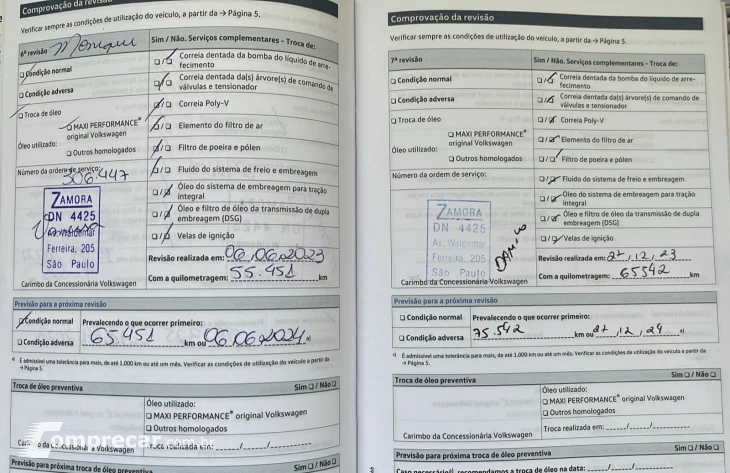 Comprovação da revisão
Verificar sempre as condições de utilização do veículo, a partir da → Página 5.
6ª revisão
Sim / Não. Serviços complementares – Troca de:
❑ Condição normal
❑ Condição adversa
❑ Troca de óleo
Óleo utilizado:
❑ MAXI PERFORMANCE® original Volkswagen
❑ Outros homologados
Número da ordem de serviço:
306.447
ZAMORA
DN 4425
Av. Waldemar
Ferreira, 205
São Paulo
Carimbo da Concessionária Volkswagen
❑/❑ Correia dentada da bomba do líquido de arre-
fecimento
❑/❑ Correia dentada da(s) árvore(s) de comando de
válvulas e tensionador
❑/❑ Correia Poly-V
❑/❑ Elemento do filtro de ar
❑/❑ Filtro de poeira e pólen
❑/❑ Fluído do sistema de freio e embreagem
❑/❑ Óleo do sistema de embreagem para tração
integral
❑/❑ Óleo e filtro de óleo da transmissão de dupla
embreagem (DSG)
❑/❑ Velas de ignição
Revisão realizada em: 06.06.2023
Com a quilometragem: 55.451 km
Previsão para a próxima revisão
❑ Condição normal
❑ Condição adversa
Prevalecendo o que ocorrer primeiro:
65.451 km ou 06.06.2024 a)
a) É admissível uma tolerância para mais, de até 1.000 km ou até um mês. Verificar as condições de utilização do veículo a partir da
→ Página 5.
Troca de óleo preventiva
Sim ❑ / Não ❑
Óleo utilizado:
❑ MAXI PERFORMANCE® original Volkswagen
❑ Outros homologados
Carimbo da Concessionária Volkswagen
Troca realizada em: ____/____/____
Previsão para próxima troca de óleo preventiva
Sim ❑ / Não ❑
comprecar.com.br
Comprovação da revisão
Verificar sempre as condições de utilização do veículo, a partir da → Página 5.
7ª revisão
Sim / Não. Serviços complementares – Troca de:
❑ Condição normal
❑ Condição adversa
❑ Troca de óleo
Óleo utilizado:
❑ MAXI PERFORMANCE® original Volkswagen
❑ Outros homologados
Número da ordem de serviço:
ZAMORA
DN 4425
Av. Waldemar
Ferreira, 205
São Paulo
Carimbo da Concessionária Volkswagen
❑/❑ Correia dentada da bomba do líquido de arre-
fecimento
❑/❑ Correia dentada da(s) árvore(s) de comando de
válvulas e tensionador
❑/❑ Correia Poly-V
❑/❑ Elemento do filtro de ar
❑/❑ Filtro de poeira e pólen
❑/❑ Fluído do sistema de freio e embreagem
❑/❑ Óleo do sistema de embreagem para tração
integral
❑/❑ Óleo e filtro de óleo da transmissão de dupla
embreagem (DSG)
❑/❑ Velas de ignição
Revisão realizada em: 27,12,23
Com a quilometragem: 65542 km
Previsão para a próxima revisão
❑ Condição normal
❑ Condição adversa
Prevalecendo o que ocorrer primeiro:
75.542 km ou 27,12,24 a)
a) É admissível uma tolerância para mais, de até 1.000 km ou até um mês. Verificar as condições de utilização do veículo a partir da
→ Página 5.
Troca de óleo preventiva
Sim ❑ / Não ❑
Óleo utilizado:
❑ MAXI PERFORMANCE® original Volkswagen
❑ Outros homologados
Carimbo da Concessionária Volkswagen
Troca realizada em: ____/____/____
Previsão para próxima troca de óleo preventiva
Sim ❑ / Não ❑
recomendamos a troca de óleo na data: ____/____/____